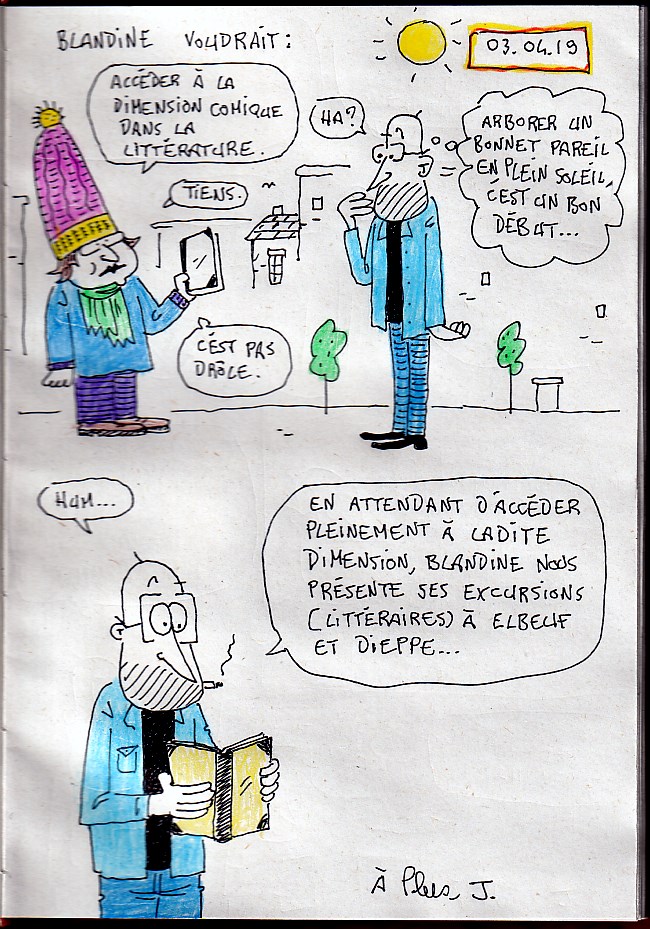 BLANDINE VOUDRAIT :
03.04.19
ACCÉDER À LA
DIMENSION COMIQUE
DANS LA
LITTÉRATURE.
HA?
ARBORER UN
BONNET PAREIL
EN PLEIN SOLEIL,
C'EST UN BON
DÉBUT...
TIENS.
C'EST PAS
DRÔLE.
HUM...
EN ATTENDANT D'ACCÉDER
PLEINEMENT À LADITE
DIMENSION, BLANDINE NOUS
PRÉSENTE SES EXCURSIONS
(LITTÉRAIRES) À ELBEUF
ET DIEPPE...
À Plus, J.